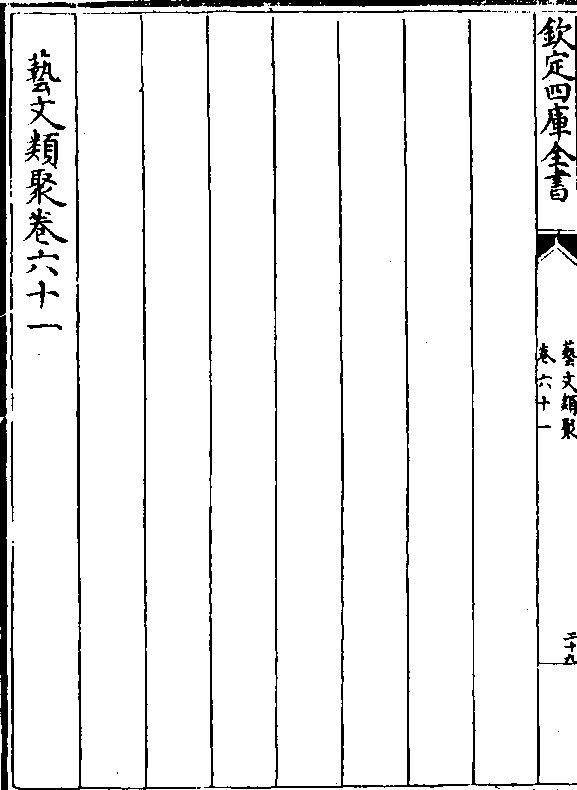 欽定四庫全書
藝文類聚
卷六十一
二十九
藝文類聚卷六十一